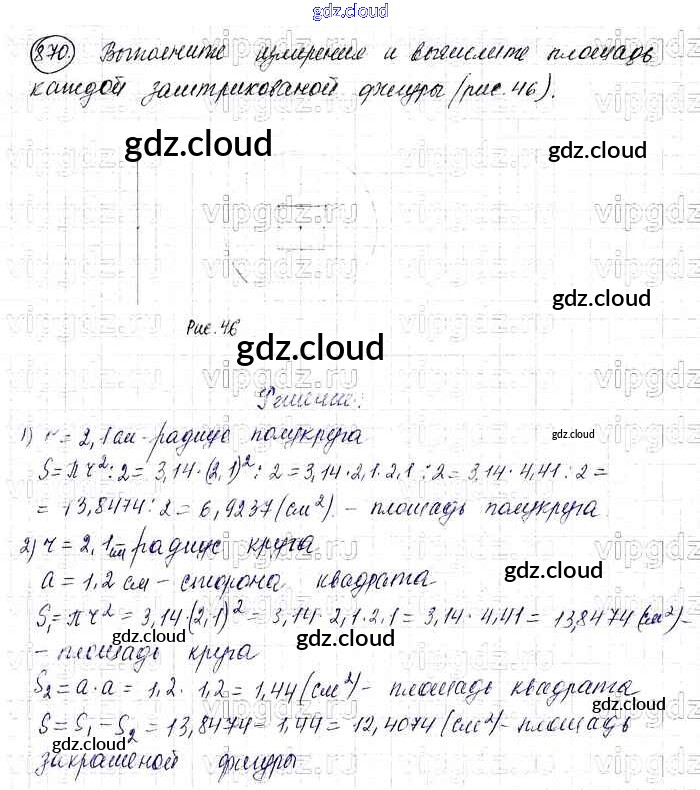 gdz.cloud
870. Выполните измерения и вычислите площадь
каждой заштрихованой фигуры (рис. 46).
gdz.cloud
gdz.cloud
vipgdz.ru vipgdz.ru vipgdz
gdz.cloud
Рис. 46
gdz.cloud
Решение:
1) r = 2,1 см - радиус полукруга
gdz.cloud
S = πr² : 2 = 3,14 · (2,1)² : 2 = 3,14 · 2,1 · 2,1 : 2 = 3,14 · 4,41 : 2 =
= 13,8474 : 2 = 6,9237 (см²) - площадь полукруга
2) r = 2,1 см радиус круга
a = 1,2 см - сторона квадрата
gdz.cloud
S₁ = πr² = 3,14 · (2,1)² = 3,14 · 2,1 · 2,1 = 3,14 · 4,41 = 13,8474 (см²) -
gdz.cloud
gdz.cloud
- площадь круга
S₂ = a · a = 1,2 · 1,2 = 1,44 (см²) - площадь квадрата
S = S₁ - S₂ = 13,8474 - 1,44 = 12,4074 (см²) - площадь
gdz.cloud
gdz.cloud
закрашеной фигуры